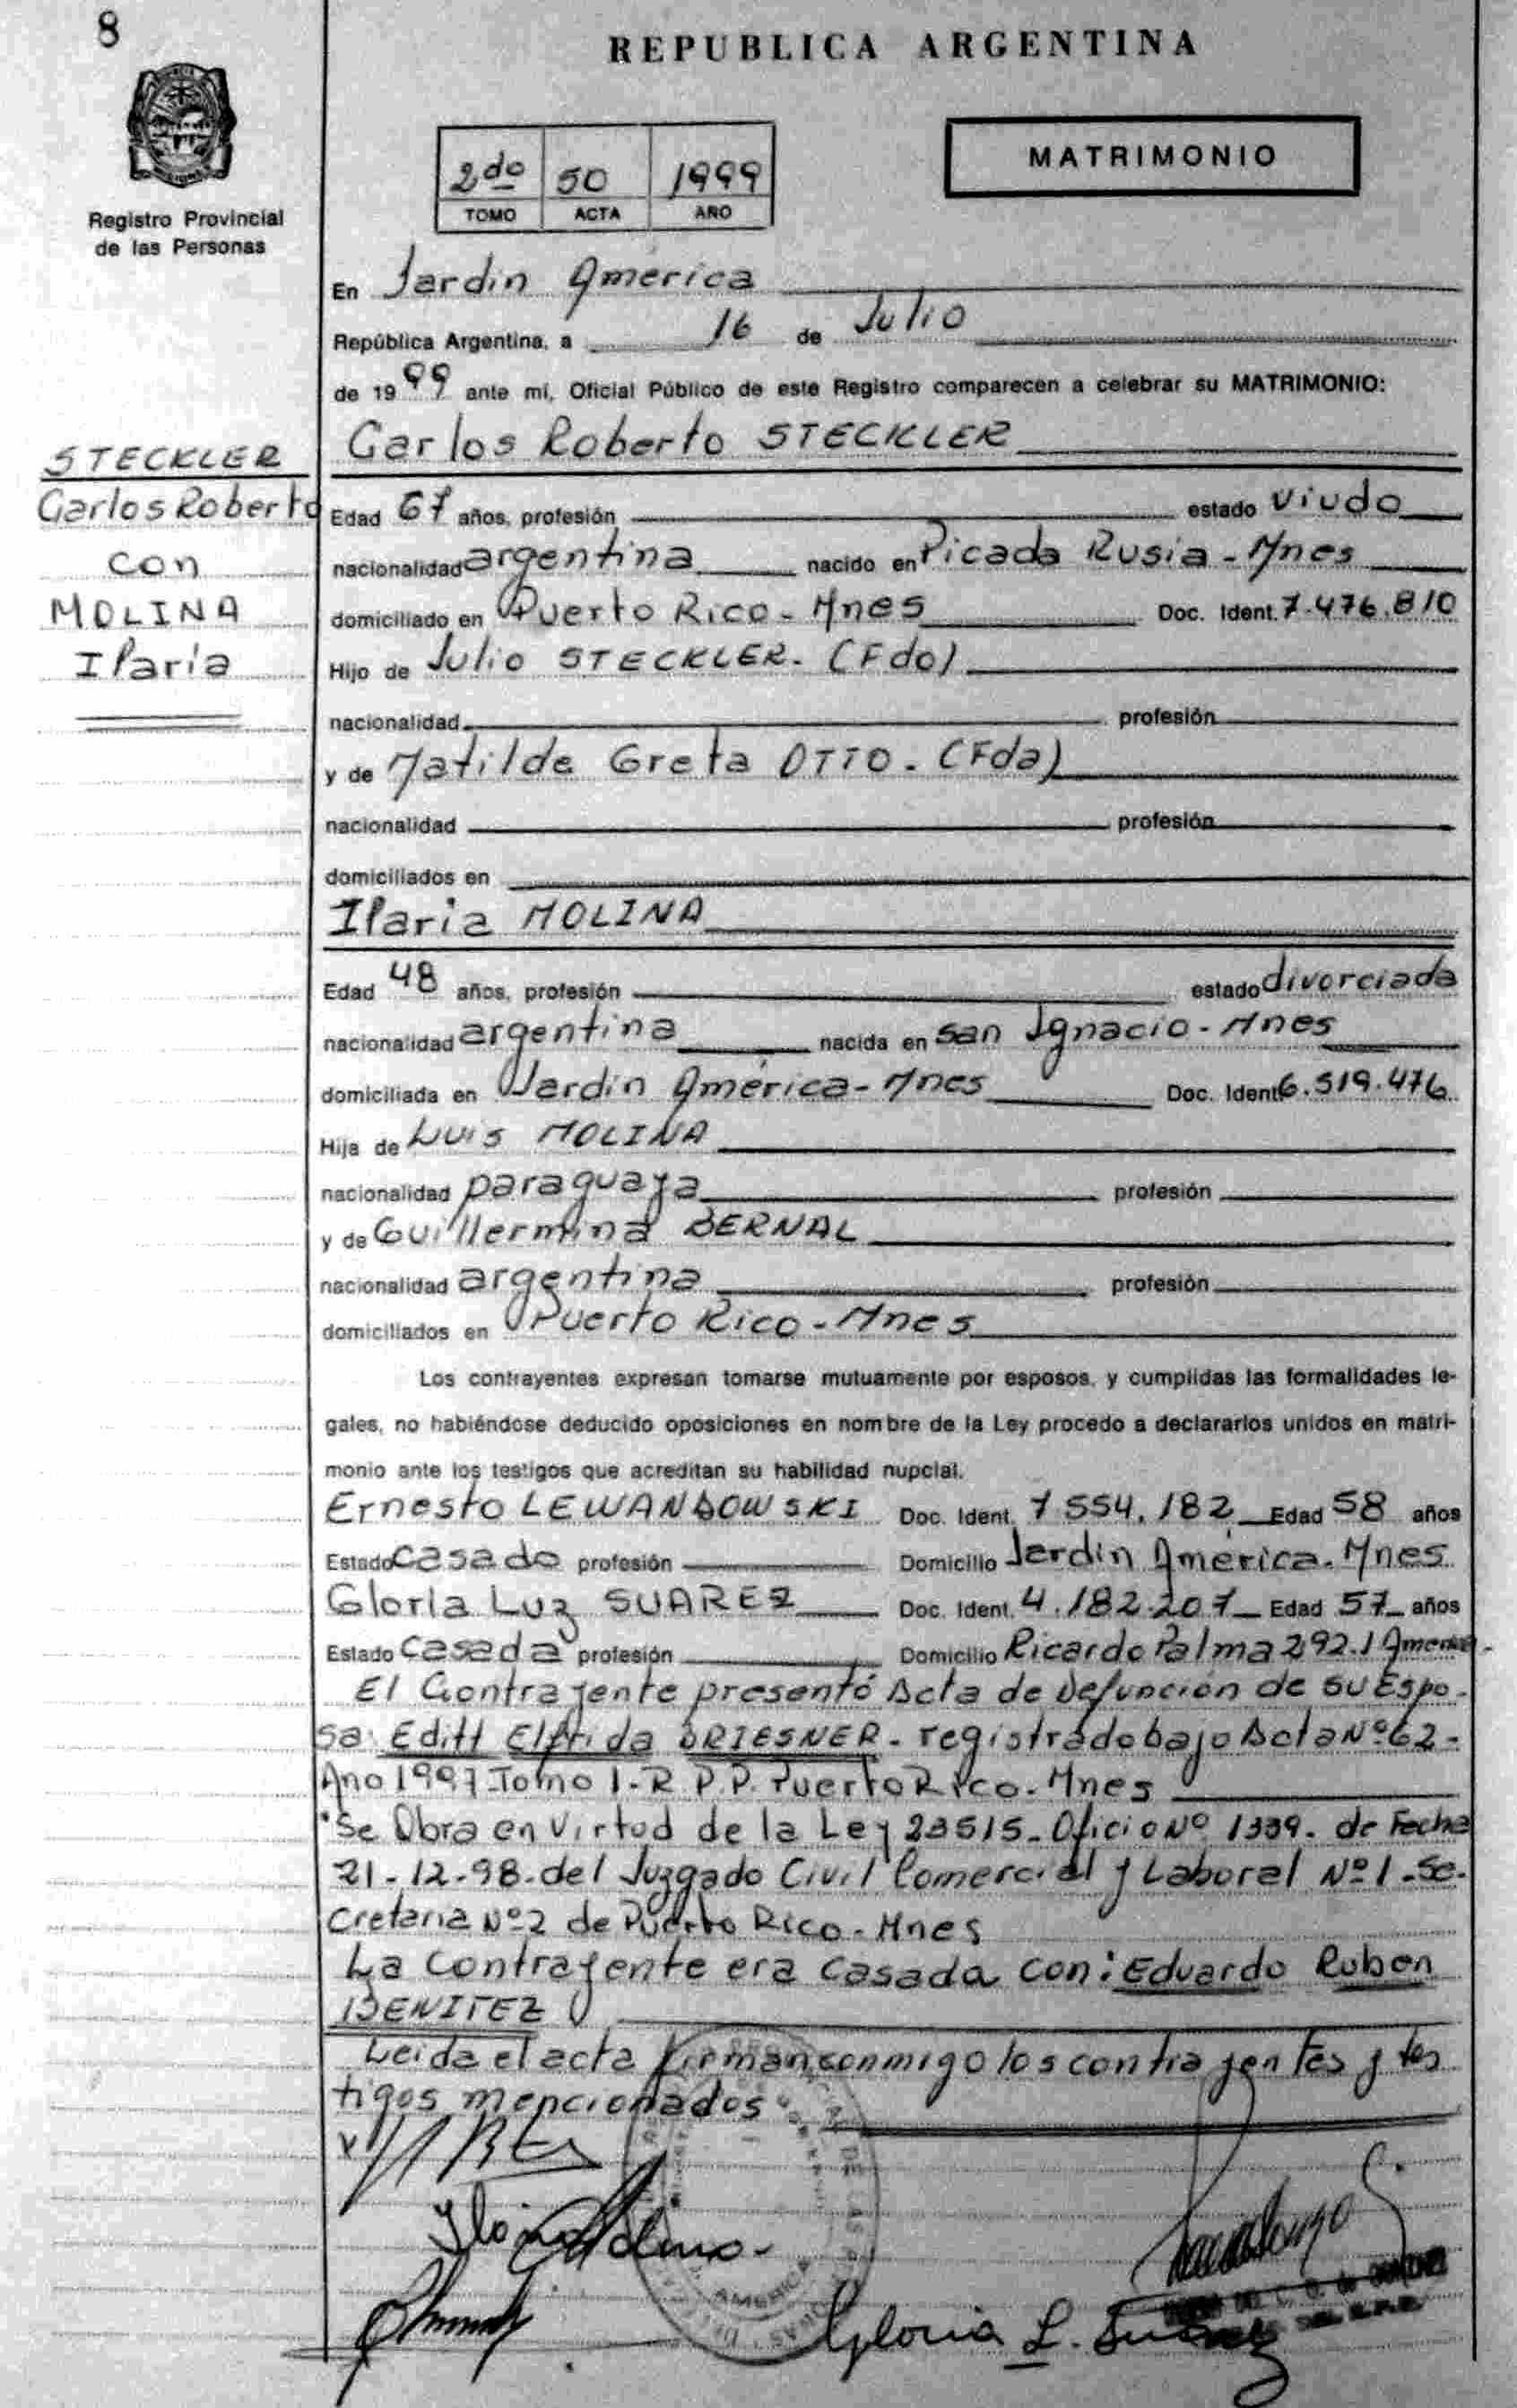 8
REPUBLICA ARGENTINA
2do 50 1999
TOMO ACTA AÑO
MATRIMONIO
Registro Provincial
de las Personas
En Jardin América
República Argentina, a 16 de Julio
de 1999 ante mi, Oficial Público de este Registro comparecen a celebrar su MATRIMONIO:
STECKLER
Carlos Roberto
con
MOLINA
Ilaria
Carlos Roberto STECKLER
Edad 67 años, profesión estado viudo
nacionalidad argentina nacido en Picada Rusia - Mnes
domiciliado en Puerto Rico - Mnes Doc. Ident. 7.476.810
Hijo de Julio STECKLER. (Fdo)
nacionalidad profesión
y de Matilde Greta OTTO. (Fda)
nacionalidad profesión
domiciliados en
Ilaria MOLINA
Edad 48 años, profesión estado divorciada
nacionalidad argentina nacida en San Ignacio - Mnes
domiciliada en Jardin América - Mnes Doc. Ident. 6.519.476
Hija de Luis MOLINA
nacionalidad paraguaya profesión
y de Guillermina BERNAL
nacionalidad argentina profesión
domiciliados en Puerto Rico - Mnes
Los contrayentes expresan tomarse mutuamente por esposos, y cumplidas las formalidades le-
gales, no habiéndose deducido oposiciones en nombre de la Ley procedo a declararlos unidos en matri-
monio ante los testigos que acreditan su habilidad nupcial.
Ernesto LEWANDOWSKI Doc. Ident. 7 554.182 Edad 58 años
Estado casado profesión Domicilio Jardin América. Mnes
Gloria Luz SUAREZ Doc. Ident. 4.182.207 Edad 57 años
Estado casada profesión Domicilio Ricardo Palma 292. J América
El Contrayente presentó Acta de Defunción de su Espo-
sa: Editt Elfrida BRIESNER. registrado bajo Acta Nº 62-
Año 1997 Tomo 1- R.P.P. Puerto Rico. Mnes
Se Obra en Virtud de la Ley 23515. Oficio Nº 1339. de Fecha
21-12-98. del Juzgado Civil Comercial y Laboral Nº 1. Se-
cretaria Nº 2 de Puerto Rico - Mnes
La Contrayente era casada con: Eduardo Ruben
BENITEZ
Leida el acta firman conmigo los contrayentes y tes
tigos mencionados
Gloria L. Suarez